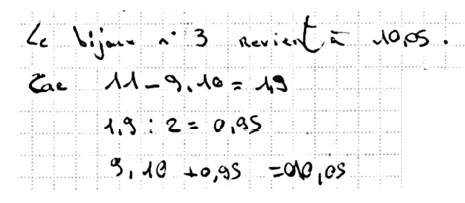 Le bijoux n° 3 revient à 10,05.
Car 11 - 9,10 = 1,9
1,9 : 2 = 0,95
9,10 + 0,95 = 10,05